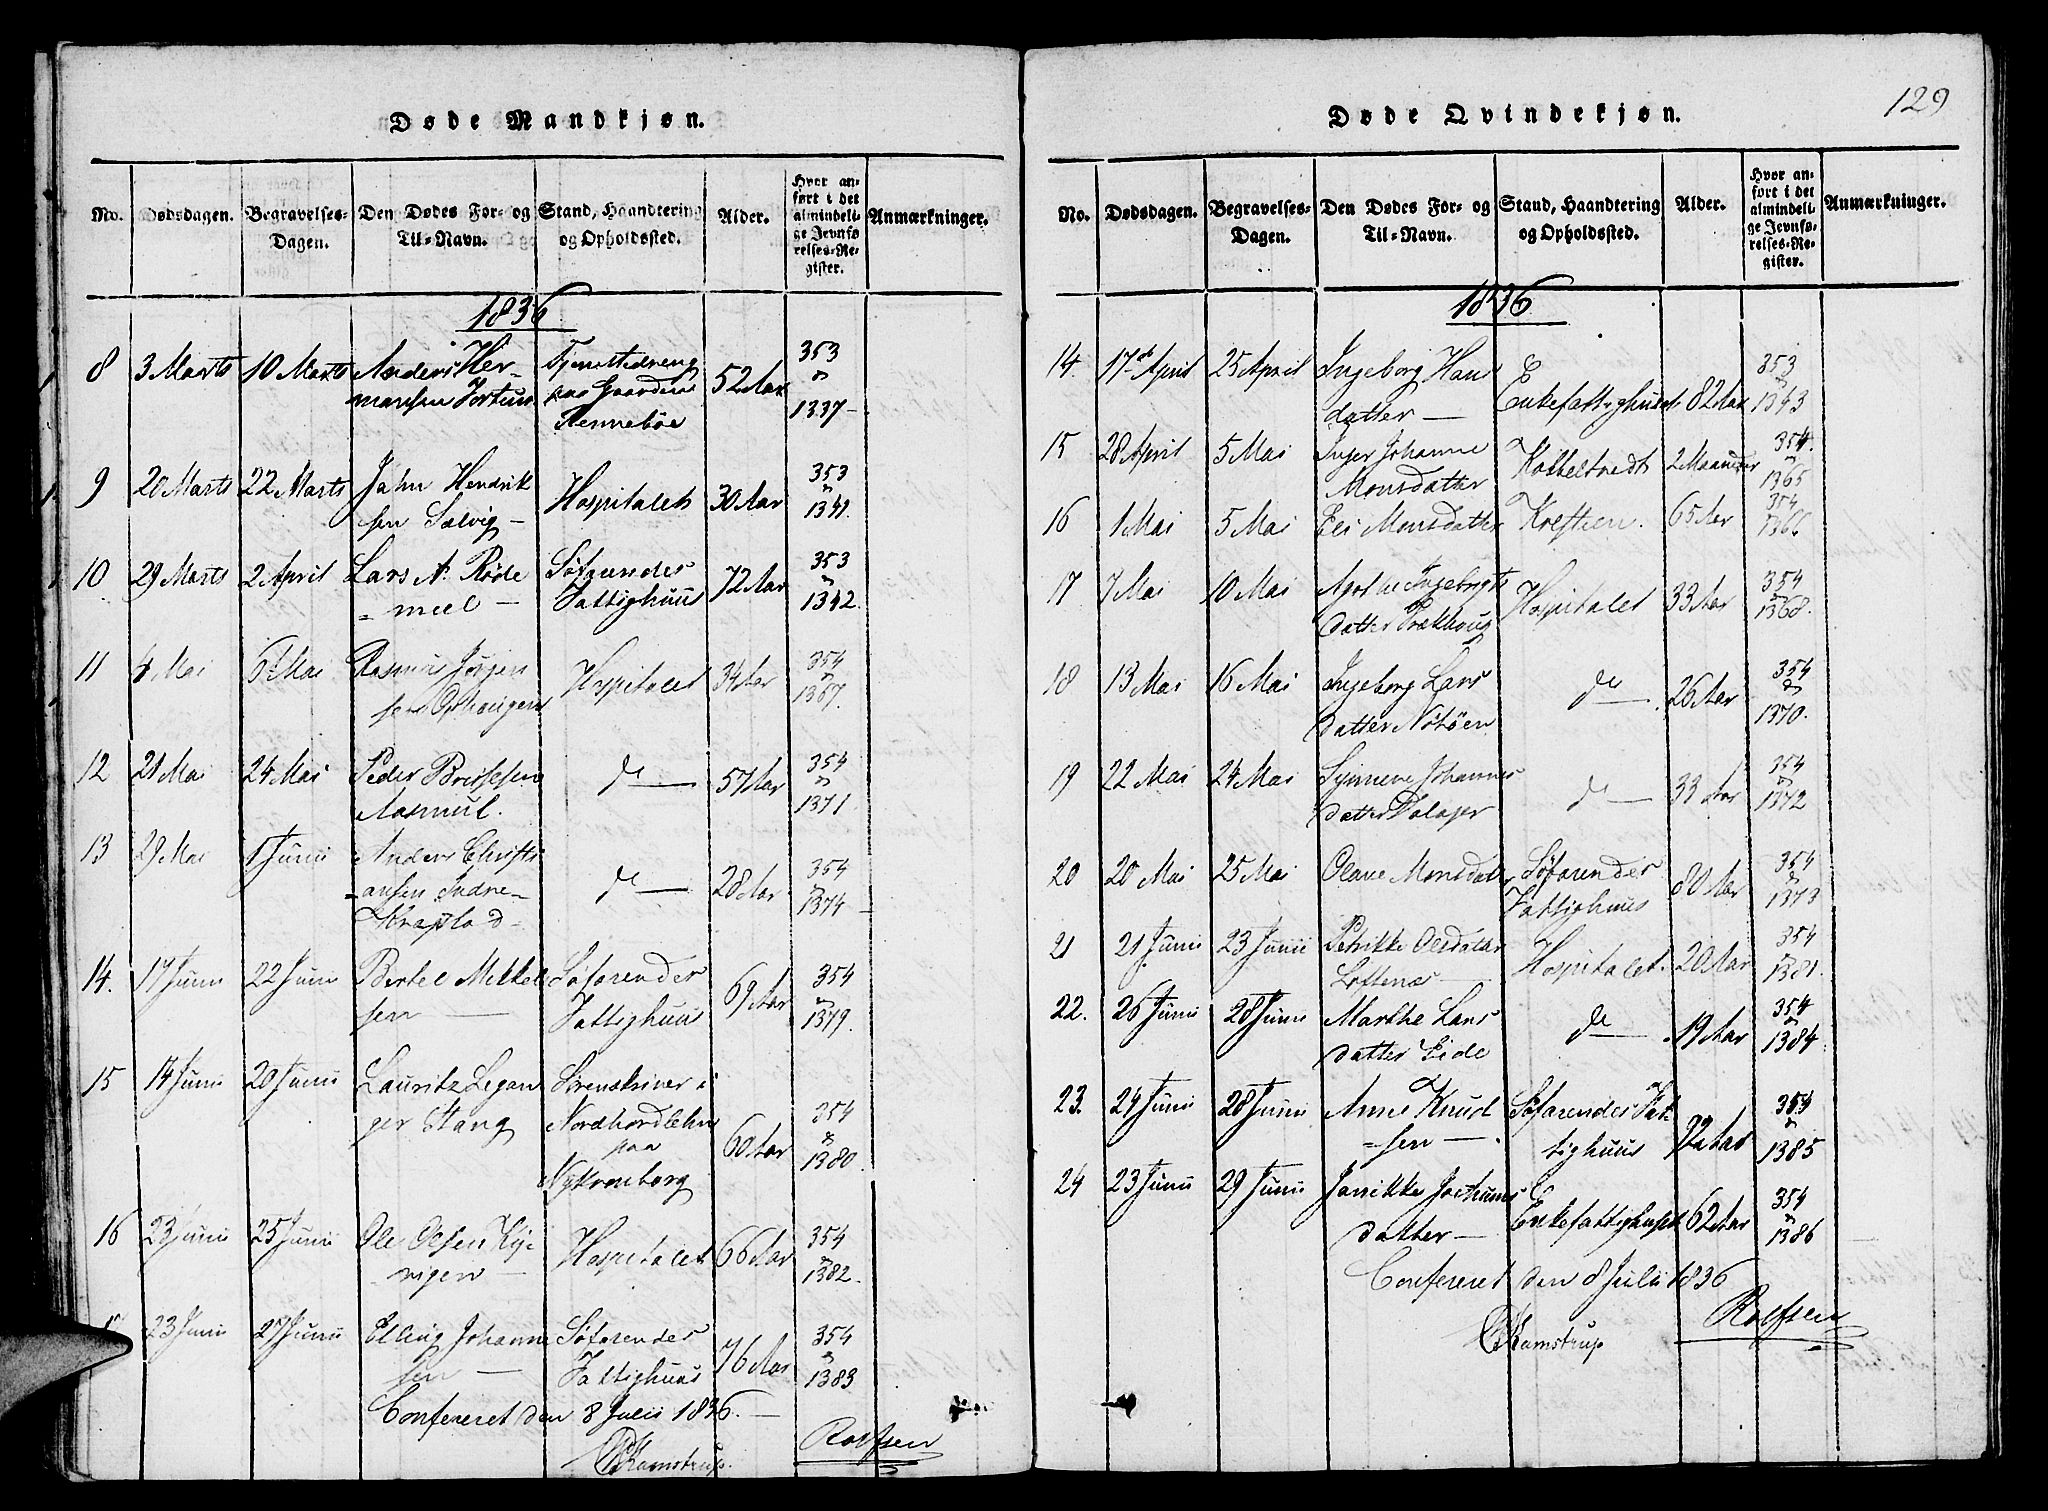 Døde Mandkjøn.
No. Dødsdagen. Begravelses-Dagen. Den Dødes For- og Til-Navn. Stand, Haandtering og Opholdssted. Alder. Hvor anført i det almindelige Jevnførelses-Register. Anmærkninger.
1836
8 3 Marts 10 Marts Anders Her- Tjenestedreng 52 Aar 353
mansen Fortun paa Gaarden 1337
Rennebøe
9 20 Marts 22 Marts Jahn Hendrik Hospitalet 30 Aar 353
sen Sælvig 1341.
10 29 Marts 2 April Lars N. Røde Søfarendes 72 Aar 353
meel Fattighuus 1342.
11 4 Mai 6 Mai Rasmus Jørgen Hospitalet 34 Aar 354
sen 1367.
12 21 Mai 24 Mai Peder 57 Aar 354
d° 1371.
13 29 Mai 1 Junii Anders Christi d° 28 Aar 354
ansen Indre- 1374
14. 17 Junii 22 Junii Bertel Mikkel Søfarendes 69 Aar 354
sen Fattighuus 1379.
15 14 Junii 20 Junii Lauritz Segan Sorenskriver i
ger Stang Nordhordlehn 60 Aar 354
paa 1380.
Nykronborg
16 23 Junii 25 Junii Ole Olsen Hospitalet 66 Aar 354
1382.
17 23 Junii 27 Junii Elling Johanne Søfarendes 76 Aar 354
sen Fattighuus 1383
Confereret den 8 Julii 1836.
Kamstrup. Rolfsen
129
Døde Qvindekjøn.
No. Dødsdagen. Begravelses-Dagen. Den Dødes For- og Til-Navn. Stand, Haandtering og Opholdssted. Alder. Hvor anført i det almindelige Jevnførelses-Register. Anmærkninger.
1836
14. 17 April 25 April Ingeborg Han 353
datter Enkefattighuset 82 Aar 1343
15 28 April 5 Mai Inger Johanne 2 Maaneder 354
Monsdatter 1365
16 1 Mai 5 Mai Eli Monsdatter 65 Aar 354
1366
17 7 Mai 10 Mai Hospitalet 33 Aar 354
datter 1368.
18 13 Mai 16 Mai Ingeborg Lars d° 26 Aar 354
datter Nötöen 1370.
19 22 Mai 24 Mai Synneve Johannes d° 33 Aar 354
datter 1372
20 20 Mai 25 Mai Olave Monsdatter Søfarendes 80 Aar 354
Fattighuus 1373
21 21 Junii 23 Junii Petrikke Olsdatter Hospitalet. 20 Aar 354
Loftenæs 1381.
22. 26 Junii 28 Junii Marthe Lars d° 19 Aar 354
datter Eide 1384.
23. 24 Junii 28 Junii Anne Knud Søfarendes Fat 354
sen tighuus 1385
24 23 Junii 29 Junii Janikke Jochums 354
datter Enkefattighuset 62 Aar 1386
Confereret den 8 Julii 1836
Kamstrup Rolfsen